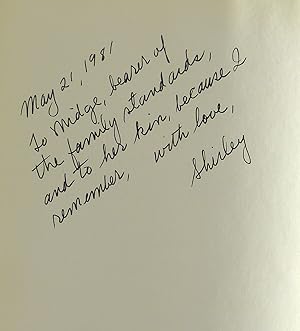 May 21, 1981
To Midge, bearer of
the family standards,
and to her kin, because I
remember, with love,
Shirley